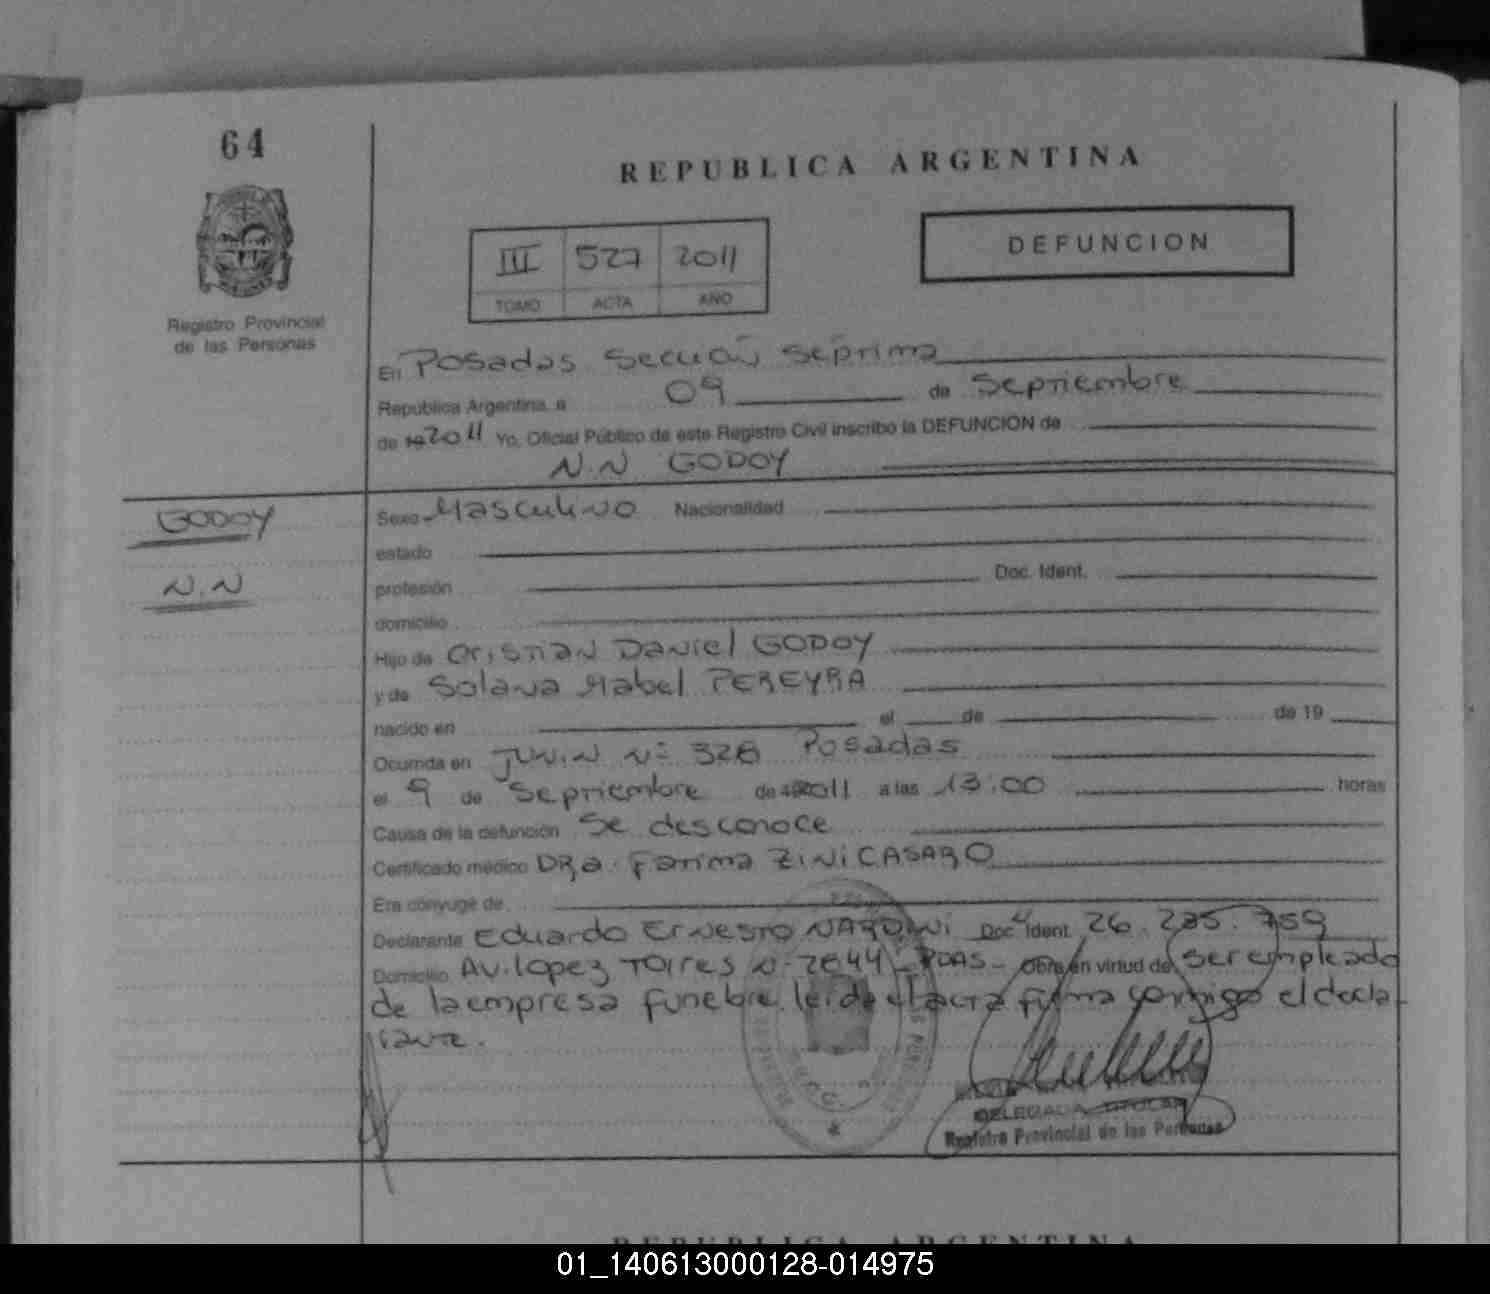 64
REPUBLICA ARGENTINA
DEFUNCION
III 527 2011
TOMO ACTA AÑO
Registro Provincial
de las Personas
En Posadas Sección Séptima
República Argentina, a 09 de Septiembre
de 19 2011 Yo, Oficial Público de este Registro Civil inscribo la DEFUNCION de
N.N GODOY
GODOY
N.N
Sexo Masculino Nacionalidad
estado
profesión Doc. Ident.
domicilio
Hijo de Cristian Daniel GODOY
y de Solana Mabel PEREYRA
nacido en el de de 19
Ocurrida en JUNIN Nº 328 Posadas
el 9 de Septiembre de 2011 a las 13:00 horas
Causa de la defunción Se desconoce
Certificado médico DRa. Fatima ZINI CASARO
Era cónyuge de
Declarante Eduardo Ernesto Doc. Ident. 26.285.759
Domicilio AV. Lopez Torres Nº 2644 - PDAS - Obra en virtud de Ser empleado
de la empresa funebre. leida el acta firma conmigo el decla
rante.
DELEGADA TITULAR
Registro Provincial de las Personas
REPUBLICA ARGENTINA
01_140613000128-014975